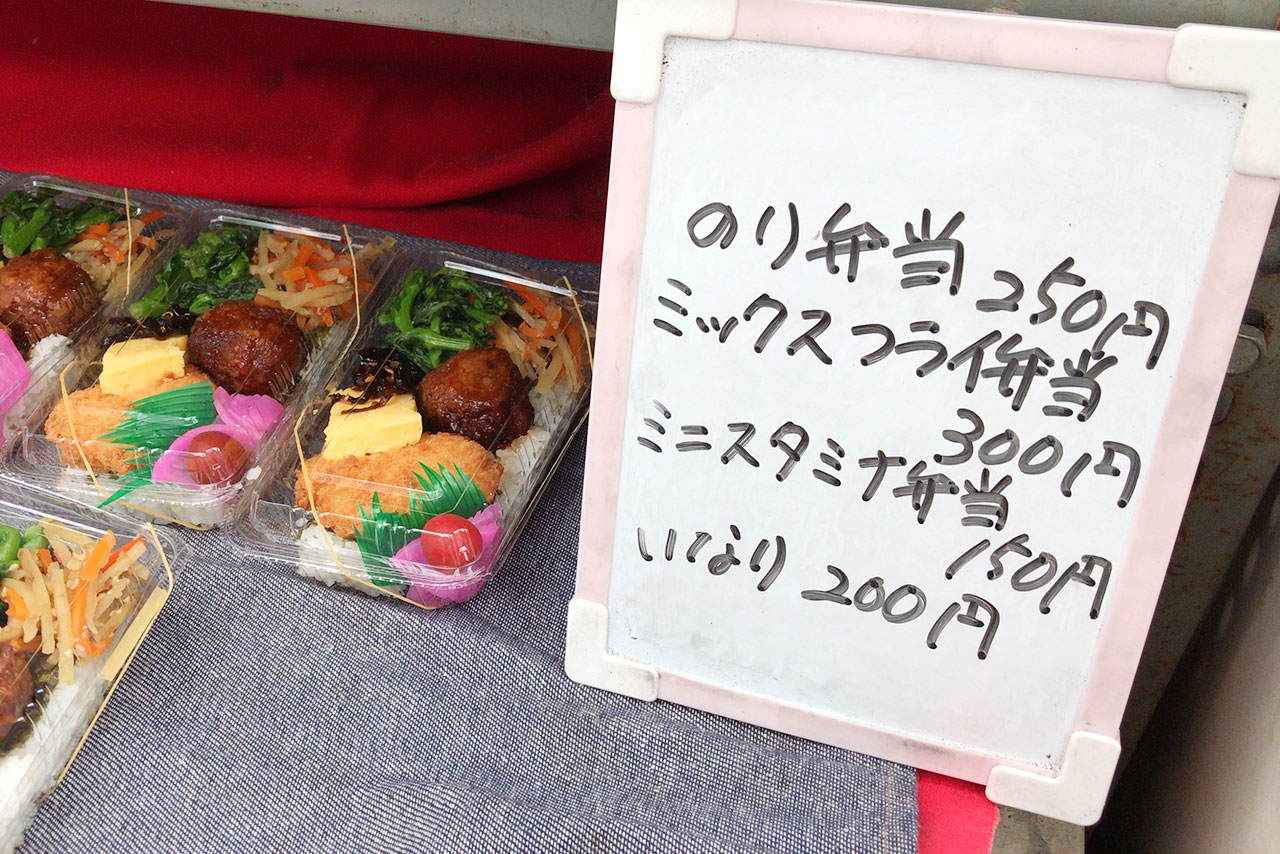 のり弁当 250円
ミックスフライ弁当
300円
ミニスタミナ弁当
150円
いなり 200円